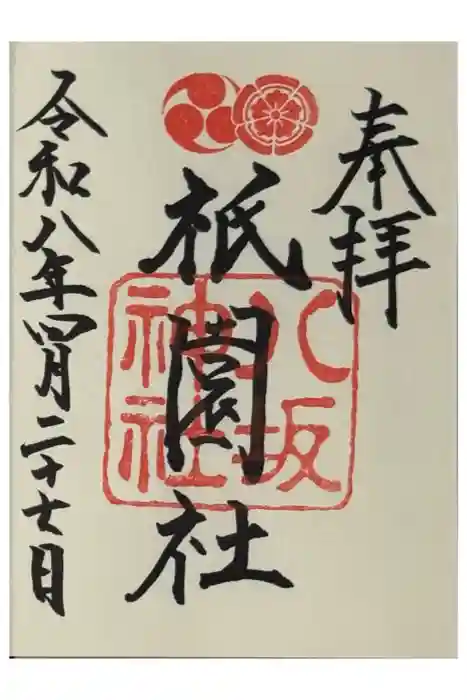 奉拝
祇園社
八坂
神社
令和八年四月二十七日